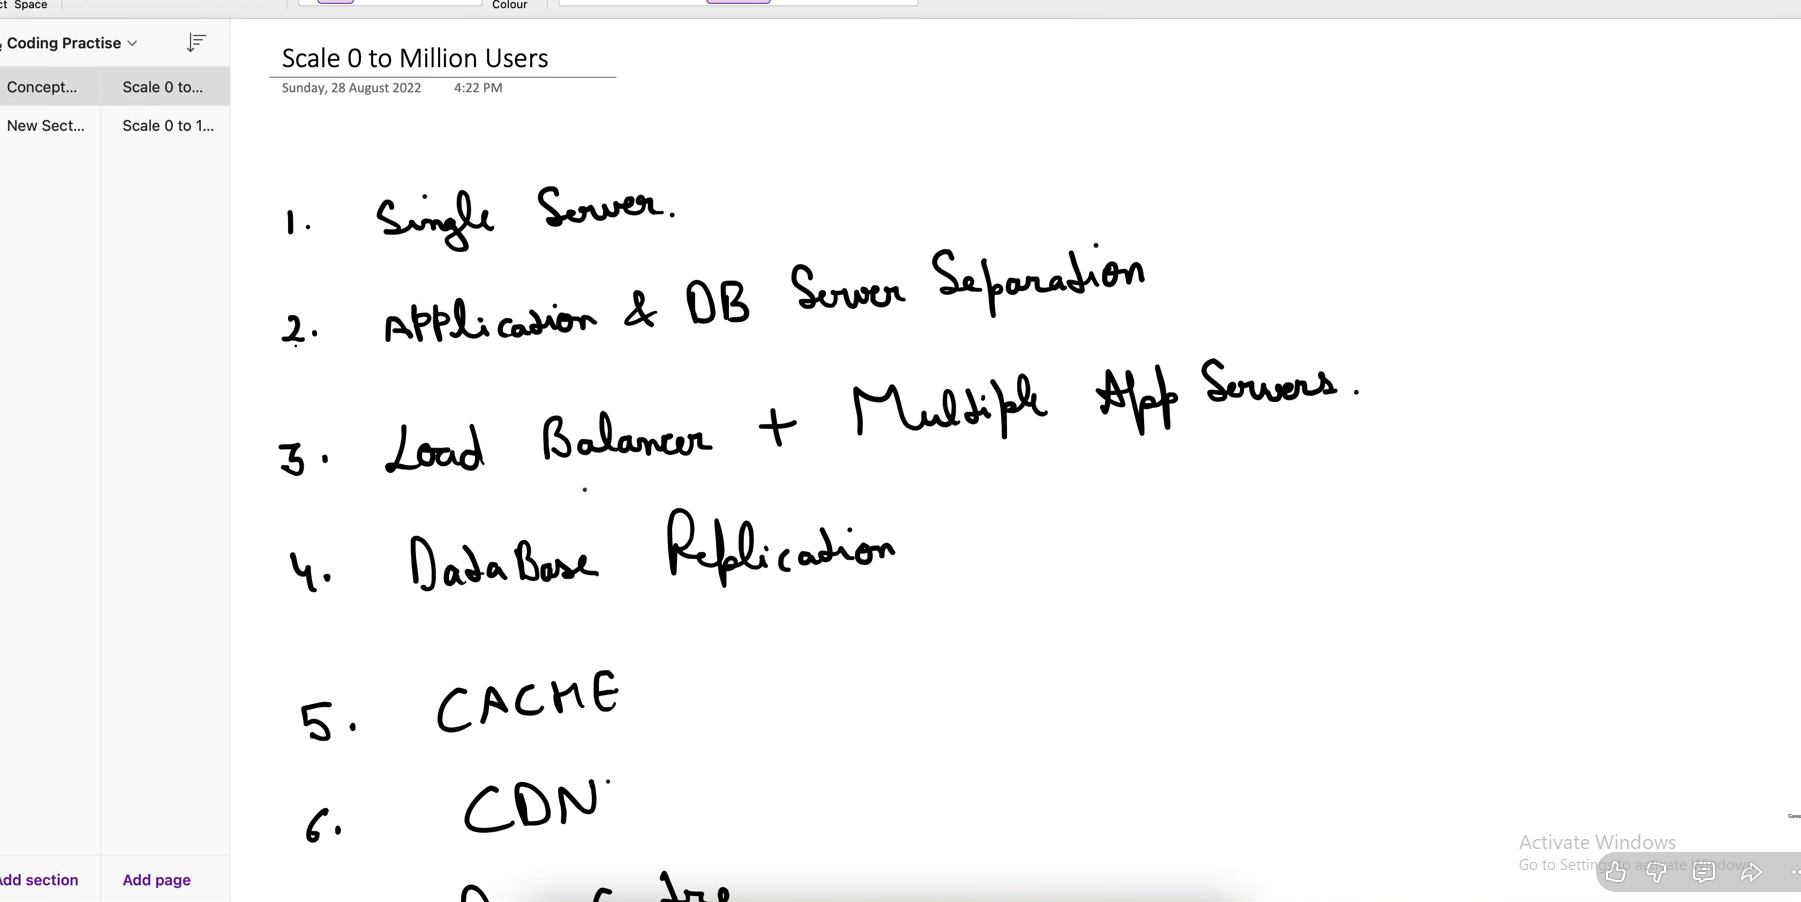 Space
Colour
Coding Practise
Concept...
Scale 0 to...
New Sect...
Scale 0 to 1...
Scale 0 to Million Users
Sunday, 28 August 2022 4:22 PM
1. Single Server.
2. Application & DB Server Separation
3. Load Balancer + Multiple App Servers.
4. DataBase Replication
5. CACHE
6. CDN
Add section
Add page
Activate Windows
Go to Settings to activate Windows.